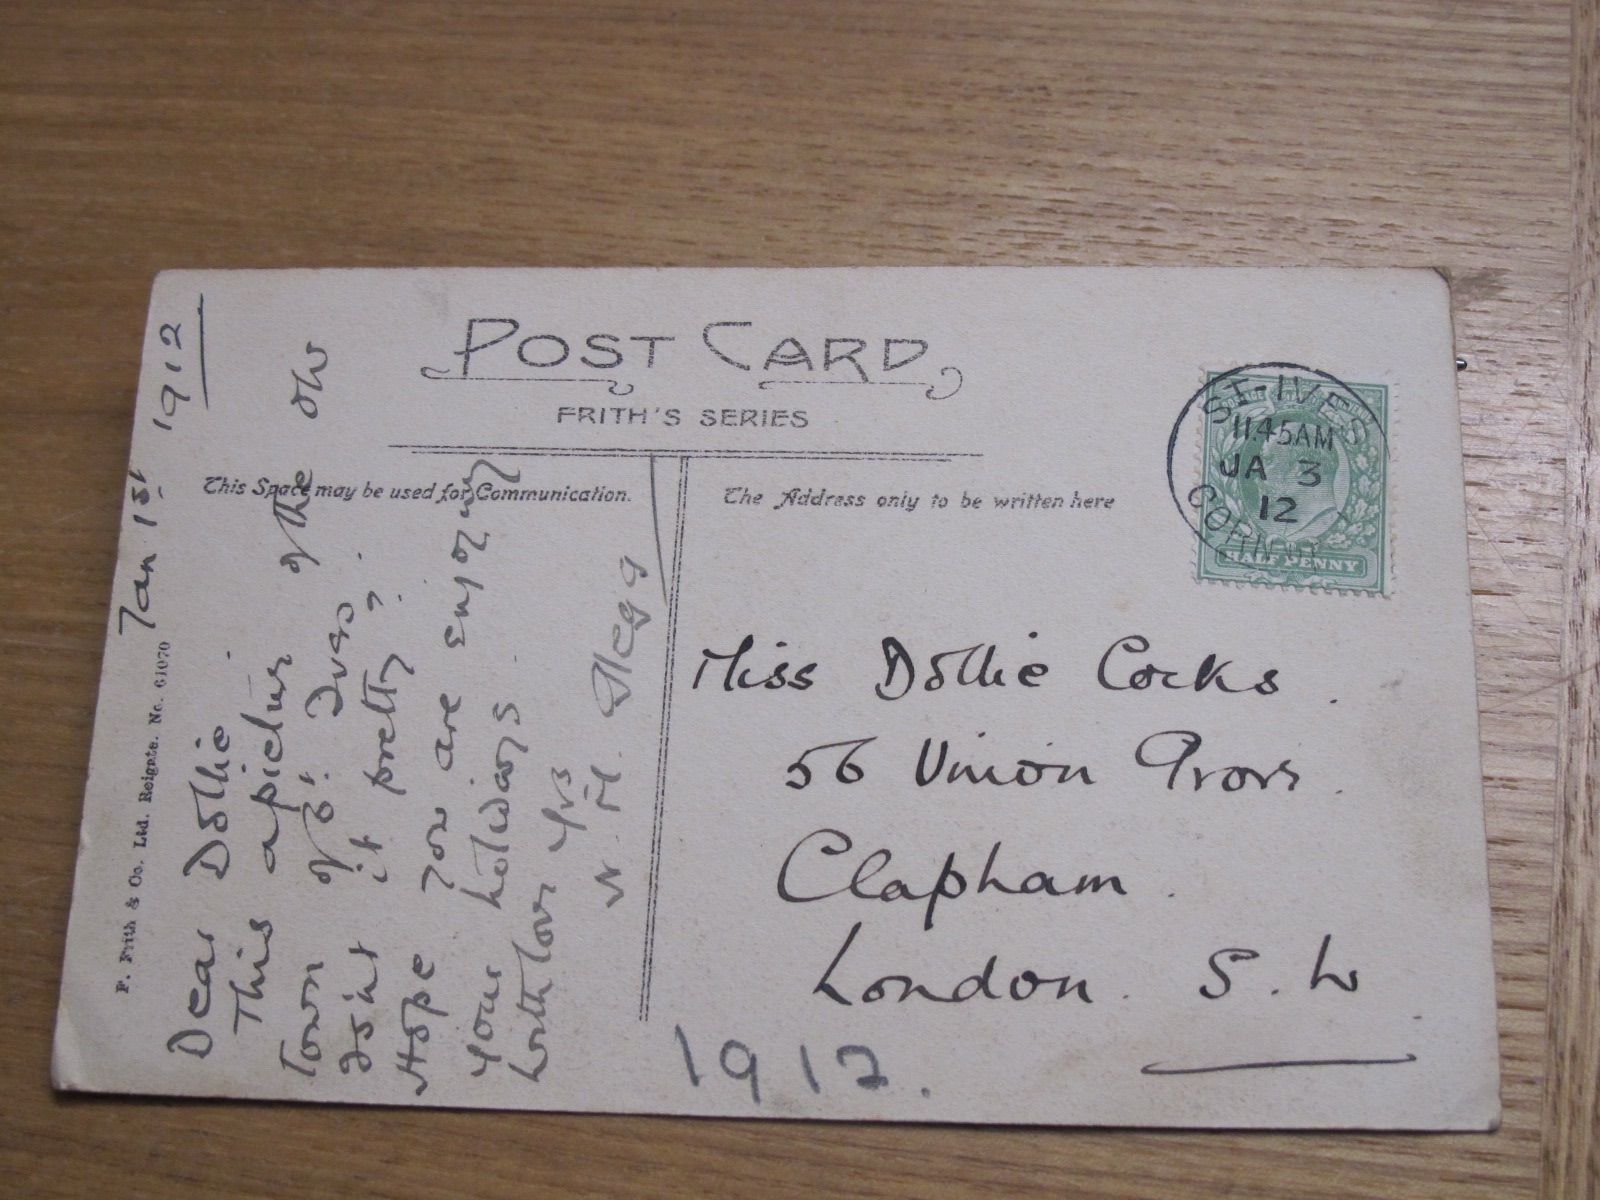 POST CARD
FRITH'S SERIES
This Space may be used for Communication.
The Address only to be written here
F. Frith & Co. Ltd. Reigate. No. 61070
Jan 1st 1912
Dear Dollie
This a picture of the old
Town of St Ives.
isint it pretty?
Hope you are enjoying
your holidays.
With love yrs
W. H.
Miss Dollie Cocks.
56 Union Grove.
Clapham.
London. S. W
1912.
ST-IVES
11.45AM
JA 3
12
CORNWALL
POSTAGE
HALF PENNY